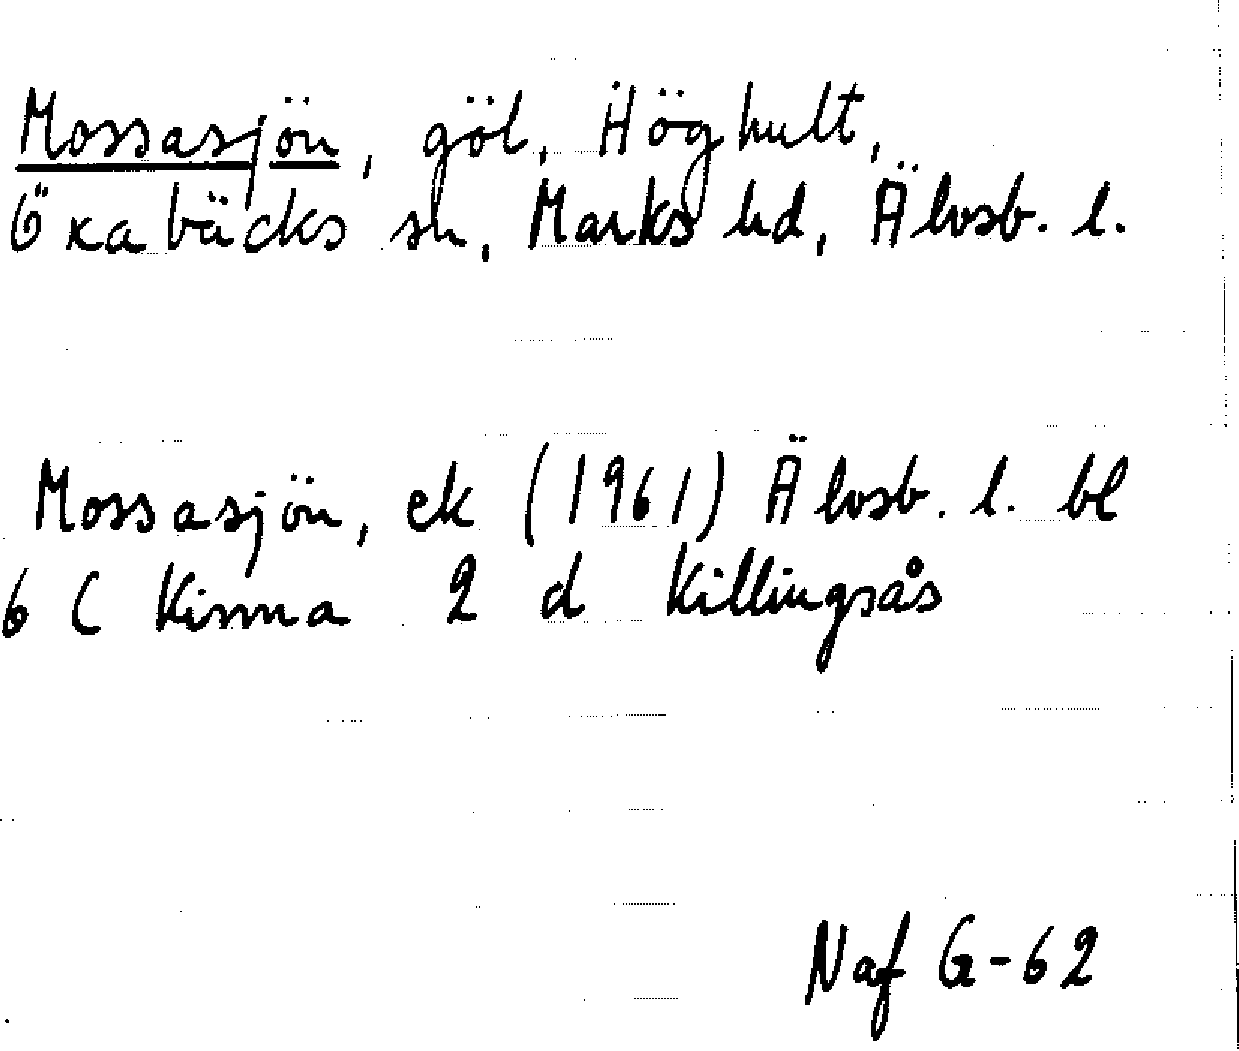 Mossasjön, göl, Höghult,
Öxabäcks sn, Marks hd, Älvsb. l.
Mossasjön, ek (1961) Älvsb. l. bl
6 C Kinna 2 d Killingsås
Naf G-62